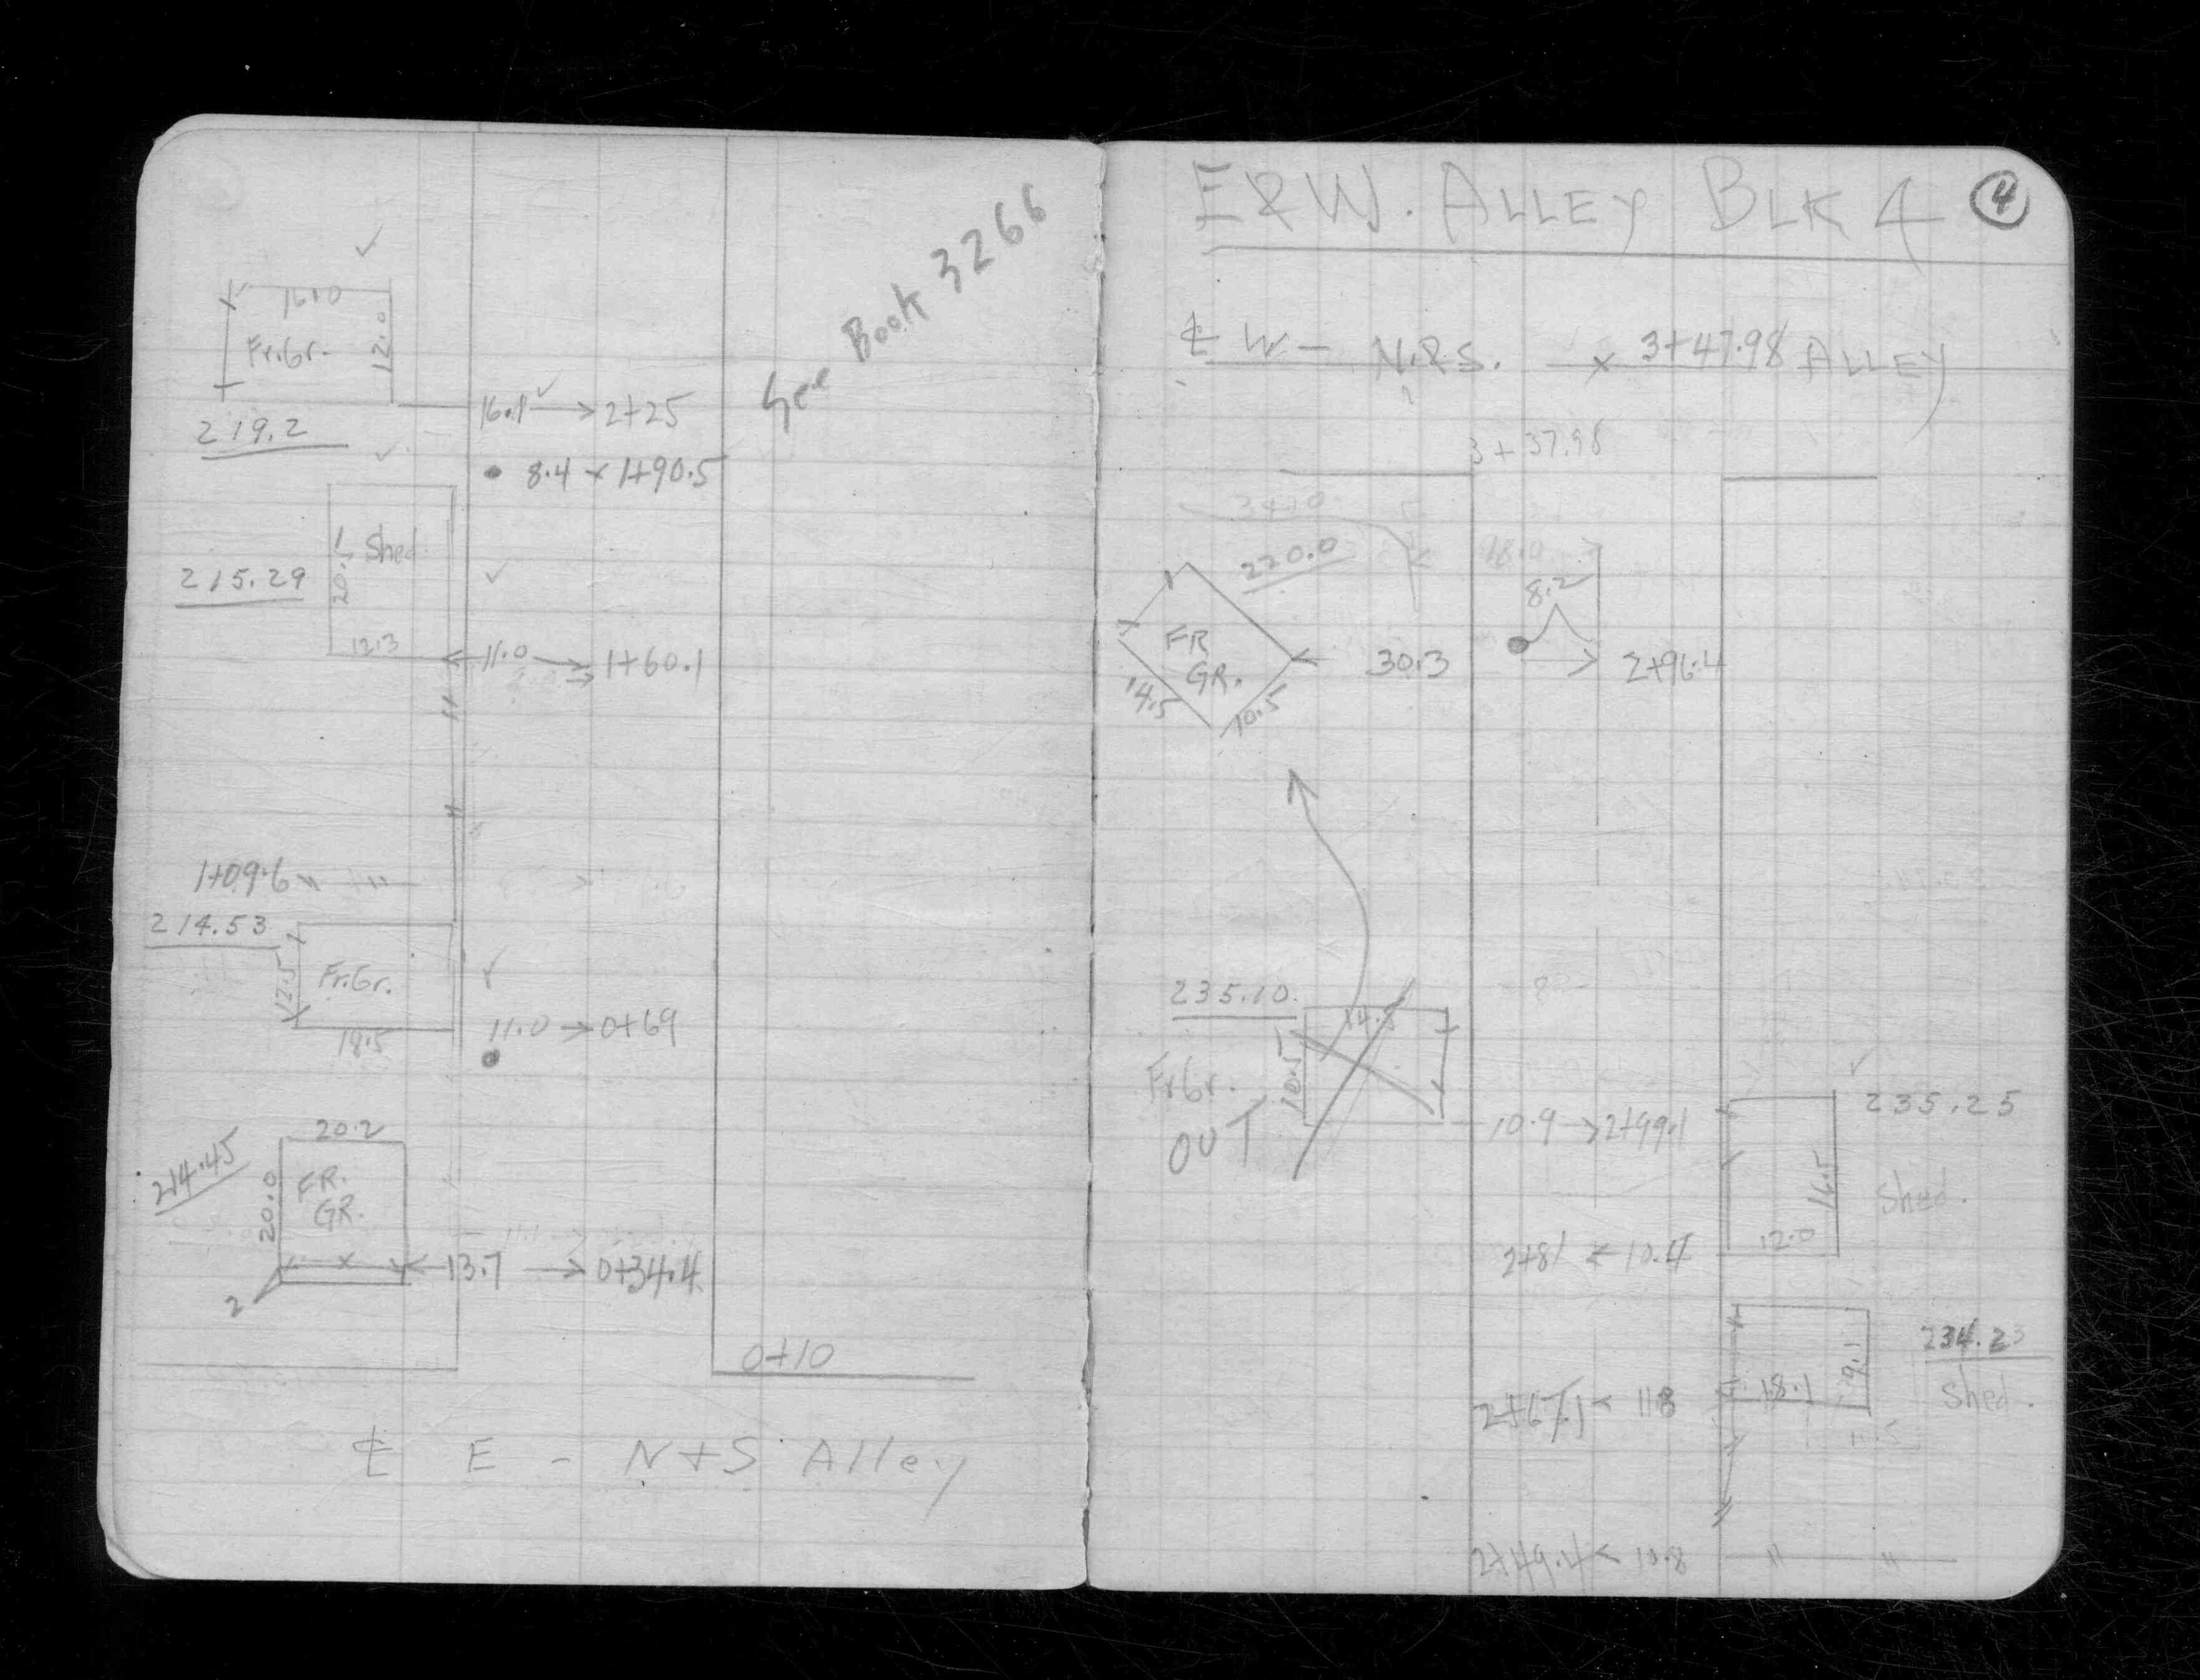 See Book 3266
16.0
Fr.Gr.
12.0
219.2
16.1 → 2+25
8.4 × 1+90.5
20.5 Shed
215.29
12.3
11.0 → 1+60.1
1+09.6
214.53
12.5 Fr.Gr.
18.5
11.0 → 0+69
20.2
214.45
20.0
FR.
GR.
13.7 → 0+34.4
2
0+10
℄ E - N+S Alley
E&W. ALLEY BLK 4 4
℄ W - N.&S. × 3+47.98 ALLEY
3+37.98
3+10
220.0
18.0
8.2
FR
GR.
30.3
2+96.4
14.5
10.5
235.10
14.5
10.5
Fr.Gr.
OUT
10.9 → 2+99.1
235.25
16.5
Shed.
12.0
2+81 < 10.4
234.23
9.1
18.1
Shed.
2+67.1 < 11.8
11.5
2+49.4 < 10.8